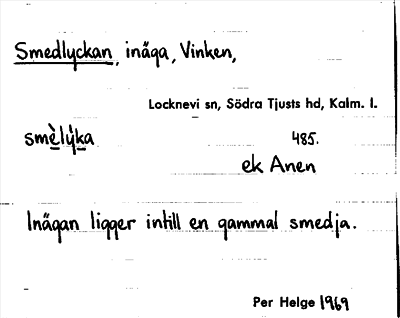 Smedlyckan, inäga, Vinken,
Locknevi sn, Södra Tjusts hd, Kalm. l.
smè̱lý̱ka 485.
ek Anen
Inägan ligger intill en gammal smedja.
Per Helge 1969